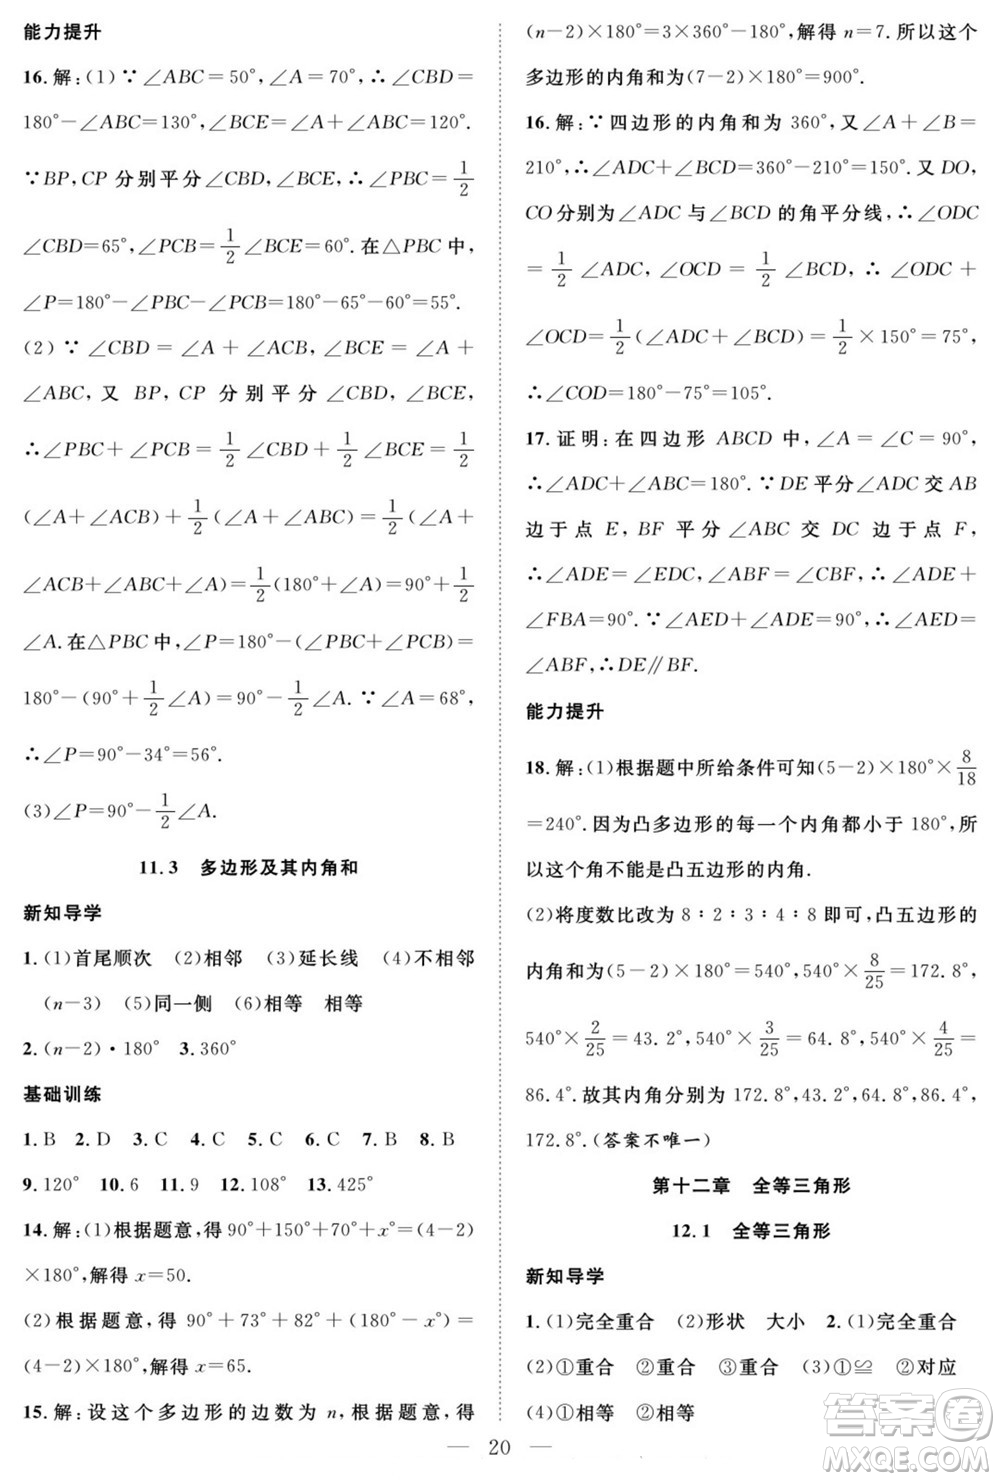 能力提升
16.解:(1)∵∠ABC=50°,∠A=70°,∴∠CBD=
180°-∠ABC=130°,∠BCE=∠A+∠ABC=120°.
∵BP,CP分别平分∠CBD,∠BCE,∴∠PBC=1/2
∠CBD=65°,∠PCB=1/2∠BCE=60°.在△PBC中,
∠P=180°-∠PBC-∠PCB=180°-65°-60°=55°.
(2)∵∠CBD=∠A+∠ACB,∠BCE=∠A+
∠ABC,又BP,CP分别平分∠CBD,∠BCE,
∴∠PBC+∠PCB=1/2∠CBD+1/2∠BCE=1/2
(∠A+∠ACB)+1/2(∠A+∠ABC)=1/2(∠A+
∠ACB+∠ABC+∠A)=1/2(180°+∠A)=90°+1/2
∠A.在△PBC中,∠P=180°-(∠PBC+∠PCB)=
180°-(90°+1/2∠A)=90°-1/2∠A.∵∠A=68°,
∴∠P=90°-34°=56°.
(3)∠P=90°-1/2∠A.
11.3 多边形及其内角和
新知导学
1.(1)首尾顺次 (2)相邻 (3)延长线 (4)不相邻
(n-3) (5)同一侧 (6)相等 相等
2.(n-2)·180° 3.360°
基础训练
1.B 2.D 3.C 4.C 5.C 6.C 7.B 8.B
9.120° 10.6 11.9 12.108° 13.425°
14.解:(1)根据题意,得90°+150°+70°+x°=(4-2)
×180°,解得x=50.
(2)根据题意,得90°+73°+82°+(180°-x°)=
(4-2)×180°,解得x=65.
15.解:设这个多边形的边数为n,根据题意,得
(n-2)×180°=3×360°-180°,解得n=7.所以这个
多边形的内角和为(7-2)×180°=900°.
16.解:∵四边形的内角和为360°,又∠A+∠B=
210°,∴∠ADC+∠BCD=360°-210°=150°.又DO,
CO分别为∠ADC与∠BCD的角平分线,∴∠ODC
=1/2∠ADC,∠OCD=1/2∠BCD,∴∠ODC+
∠OCD=1/2(∠ADC+∠BCD)=1/2×150°=75°,
∴∠COD=180°-75°=105°.
17.证明:在四边形ABCD中,∠A=∠C=90°,
∴∠ADC+∠ABC=180°.∵DE平分∠ADC交AB
边于点E,BF平分∠ABC交DC边于点F,
∴∠ADE=∠EDC,∠ABF=∠CBF,∴∠ADE+
∠FBA=90°.∵∠AED+∠ADE=90°,∴∠AED
=∠ABF,∴DE∥BF.
能力提升
18.解:(1)根据题中所给条件可知(5-2)×180°×8/18
=240°.因为凸多边形的每一个内角都小于180°,所
以这个角不能是凸五边形的内角.
(2)将度数比改为8:2:3:4:8即可,凸五边形的
内角和为(5-2)×180°=540°,540°×8/25=172.8°,
540°×2/25=43.2°,540°×3/25=64.8°,540°×4/25=
86.4°.故其内角分别为172.8°,43.2°,64.8°,86.4°,
172.8°.(答案不唯一)
第十二章 全等三角形
12.1 全等三角形
新知导学
1.(1)完全重合 (2)形状 大小 2.(1)完全重合
(2)①重合 ②重合 ③重合 (3)①≌ ②对应
(4)①相等 ②相等
20
答案卷
MXQE.COM